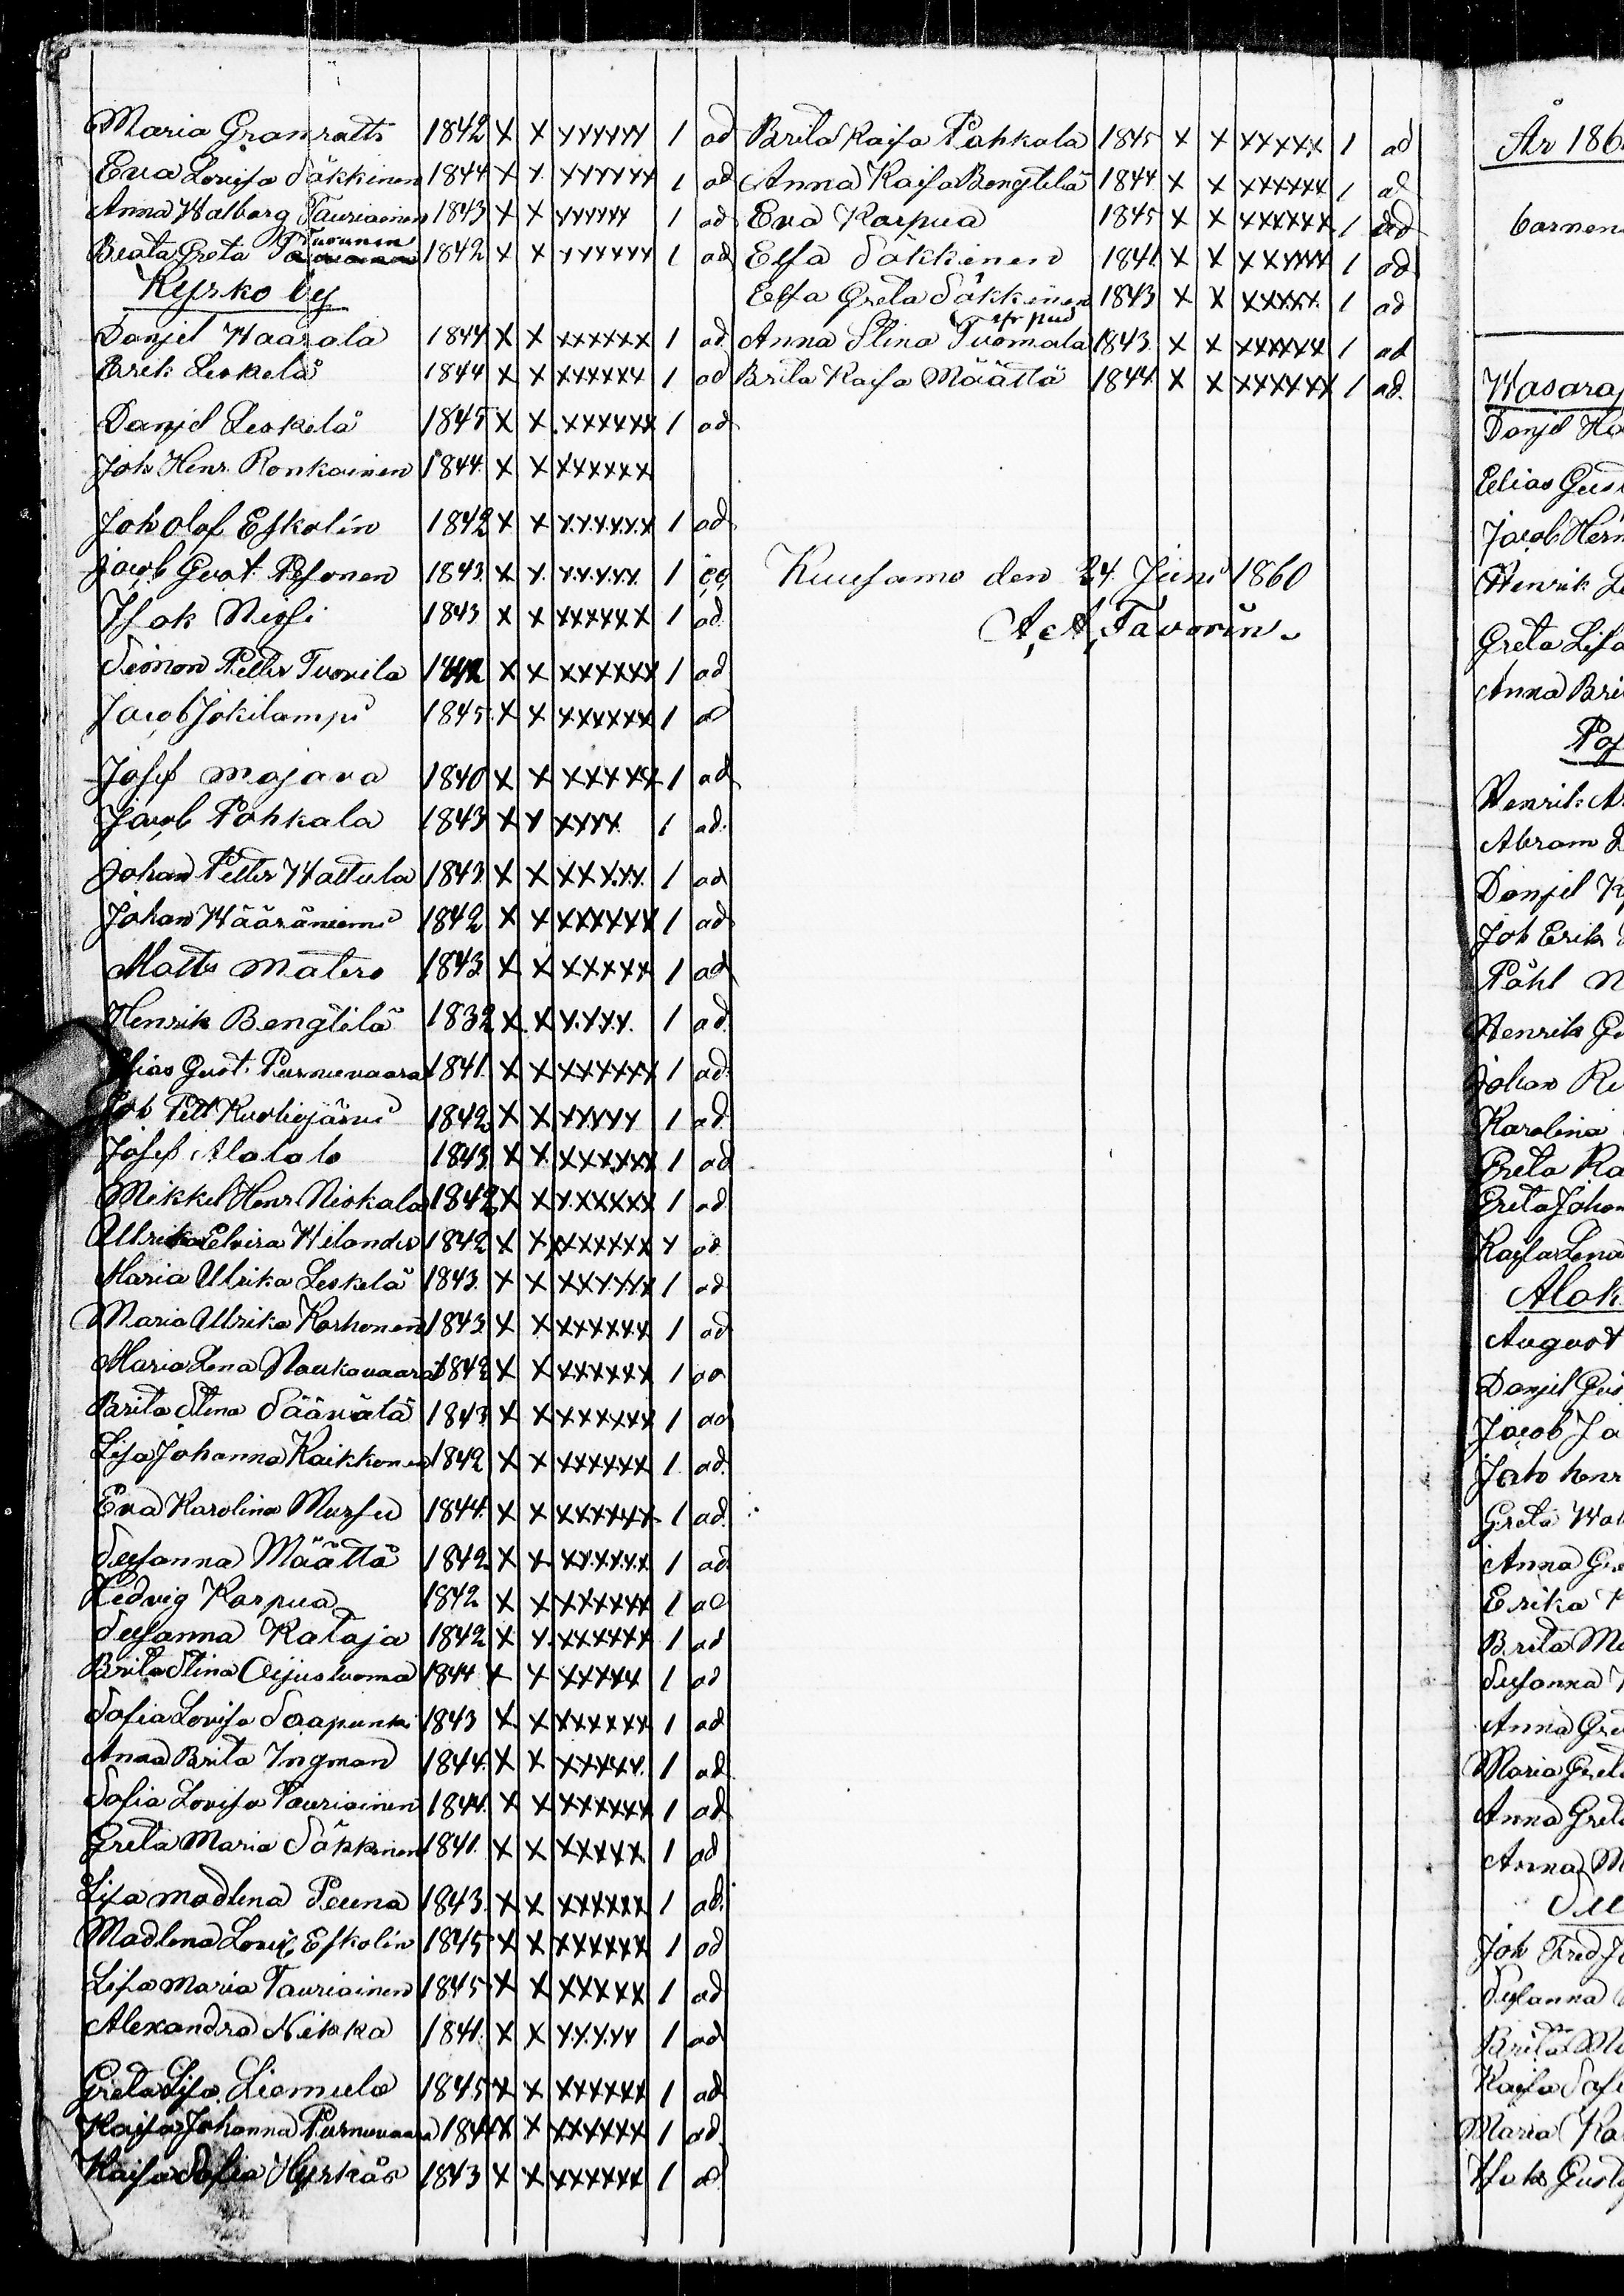 Maria Granroth 1842 x x xxxxxx 1 ad
Eva Lovisa Säkkinen 1844 x x xxxxxx 1 ad
Anna Walborg Tauriainen 1843 x x xxxxxx 1 ad
Turunen
Beata Greta 1842 x x xxxxxx 1 ad
Kyrko by
Danjel Waarala 1844 x x xxxxxx 1 ad
Erik Leskelä 1844 x x xxxxxx 1 ad
Danjel Leskelä 1845 x x xxxxxx 1 ad
Joh Henr. Ronkainen 1844 x x xxxxxx
Joh Olof Eskolin 1842 x x xxxxxx 1 ad
Jacob Gust. Pesonen 1843 x x xxxxx 1
Isak Nissi 1843 x x xxxxxx 1 ad
Simon Petter Tuovila x x xxxxxx 1 ad
Jacob Jokilampi 1845 x x xxxxxx 1 ad
Josef Majava 1840 x x xxxxxx 1 ad
Jacob Pohkala 1843 x x xxxx 1 ad
Johan Petter Wattula 1843 x x xxxxx 1 ad
Johan Wääräniemi 1842 x x xxxxxx 1 ad
Matts Matero 1843 x x xxxxx 1 ad
Henrik Bengtilä 1832 x x xxxx 1 ad
Elias Gust. Purnuvaara 1841 x x xxxxxx 1 ad
Joh Pett Kuoliojärvi 1842 x x xxxxx 1 ad
Josef Alatalo 1843 x x xxxxxx 1 ad
Mikkel Henr Niskala 1842 x x xxxxxx 1 ad
Ullrika Elvira Wilander 1842 x x xxxxxx x ad
Maria Ulrika Leskelä 1843 x x xxxxxx 1 ad
Maria Ullrika Karhonen 1843 x x xxxxxx 1 ad
Maria Lena Naukavaara 1842 x x xxxxxx 1 ad
Brita Stina Säävälä 1843 x x xxxxxx 1 ad
Lisa Johanna Kaikkonen 1842 x x xxxxxx 1 ad
Eva Karolina Mursu 1844 x x xxxxxx 1 ad
Susanna Määttä 1842 x x xxxxxx 1 ad
Hedvig Karpua 1842 x x xxxxxx 1 ad
Susanna Kataja 1842 x x xxxxxx 1 ad
Brita Stina Oijusluoma 1844 x x xxxxx 1 ad
Sofia Lovisa Saapunki 1843 x x xxxxxx 1 ad
Anna Brita Ingman 1844 x x xxxxx 1 ad
Sofia Lovisa Tauriainen 1844 x x xxxxxx 1 ad
Greta Maria Säkkinen 1841 x x xxxxx 1 ad
Lisa Madlena Peuna 1843 x x xxxxxx 1 ad
Madlena Lovis. Eskolin 1845 x x xxxxxx 1 ad
Lisa Maria Tauriainen 1845 x x xxxxx 1 ad
Alexandra Nikka 1841 x x xxxxx 1 ad
Greta Lisa Liemula 1845 x x xxxxxx 1 ad
Kaisa Johanna Purnuvaara 1844 x x xxxxxx 1 ad
Kaisa Sofia Hyrkäs 1843 x x xxxxxx 1 ad
Brita Kaisa Pohkala 1845 x x xxxxx 1 ad
Anna Kaisa Bengtilä 1844 x x xxxxxx 1 ad
Eva Karpua 1845 x x xxxxxx 1 ad
Elsa Säkkinen 1841 x x xxxxxx 1 ad
Elsa Greta Säkkinen 1843 x x xxxxx 1 ad
Anna Stina Tuomala 1843 x x xxxxxx 1 ad
Brita Kaisa Määttä 1844 x x xxxxxx 1 ad
Kuusamo den 24 Juni 1860
A. A. Favorin.
År 186
barnen
Wasara
Danjel
Elias Gus
Jacob Hen
Henrik
Greta Lisa
Anna Bri
Pos
Henrik
Abram
Danjel
Joh Erik
Påhl
Henrik
Johan
Karolina
Greta Ka
Greta Johan
Kaisa Lena
Alak
August
Danjel Gus
Jacob Ja
Joh henr
Greta Wal
Anna Gre
Erika
Brita Ma
Susanna
Anna Gre
Maria Greta
Anna Greta
Anna M
Joh Fred
Susanna
Brita M
Kaisa Sofi
Maria Ka
Isak Gust